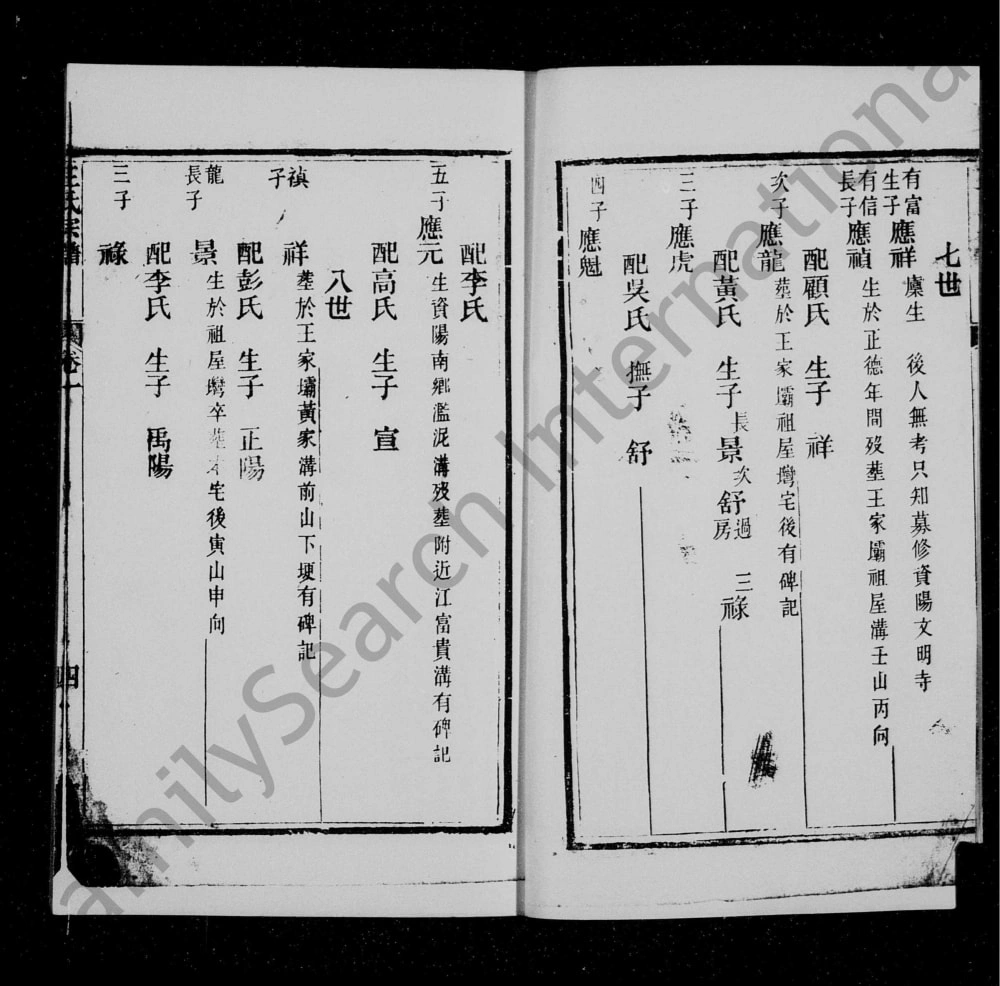 七世
有富生子 應祥 廩生 後人無考只知募修資陽文明寺
有信長子 應禎 生於正德年間歿塟王家壩祖屋溝壬山丙向
配顧氏 生子 祥
次子 應龍 塟於王家壩祖屋灣宅後有碑記
配黃氏 生子 長 景 次 舒 過房 三 祿
三子 應虎
配吳氏 撫子 舒
四子 應魁
配李氏
五子 應元 生資陽南鄉濫泥溝歿塟附近江富貴溝有碑記
配高氏 生子 宣
八世
禎子 祥 塟於王家壩黃家溝前山下埂有碑記
配彭氏 生子 正陽
龍長子 景 生於祖屋灣卒塟本宅後寅山申向
配李氏 生子 禹陽
三子 祿
王氏宗譜 卷一 四
FamilySearch International